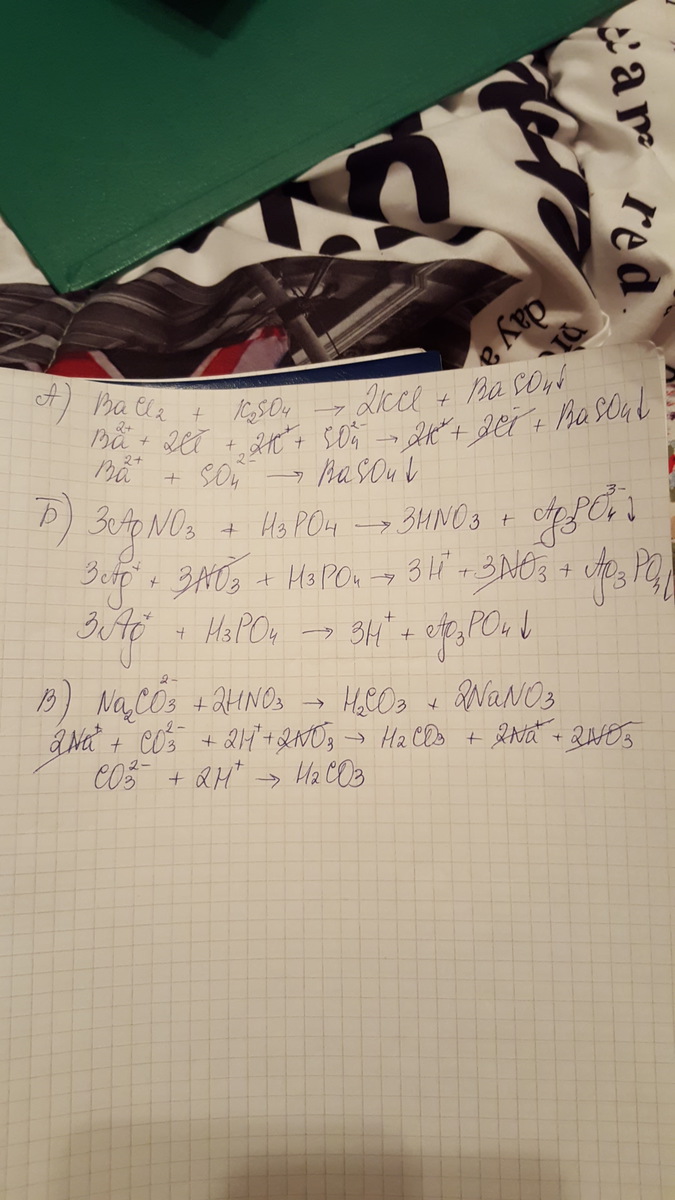 car
red.
day a
А) BaCl₂ + K₂SO₄ → 2KCl + BaSO₄↓
Ba²⁺ + 2Cl⁻ + 2K⁺ + SO₄²⁻ → 2K⁺ + 2Cl⁻ + BaSO₄↓
Ba²⁺ + SO₄²⁻ → BaSO₄↓
Б) 3AgNO₃ + H₃PO₄ → 3HNO₃ + Ag₃PO₄³⁻↓
3Ag⁺ + 3NO₃⁻ + H₃PO₄ → 3H⁺ + 3NO₃⁻ + Ag₃PO₄↓
3Ag⁺ + H₃PO₄ → 3H⁺ + Ag₃PO₄↓
В) Na₂CO₃²⁻ + 2HNO₃ → H₂CO₃ + 2NaNO₃
2Na⁺ + CO₃²⁻ + 2H⁺ + 2NO₃⁻ → H₂CO₃ + 2Na⁺ + 2NO₃⁻
CO₃²⁻ + 2H⁺ → H₂CO₃